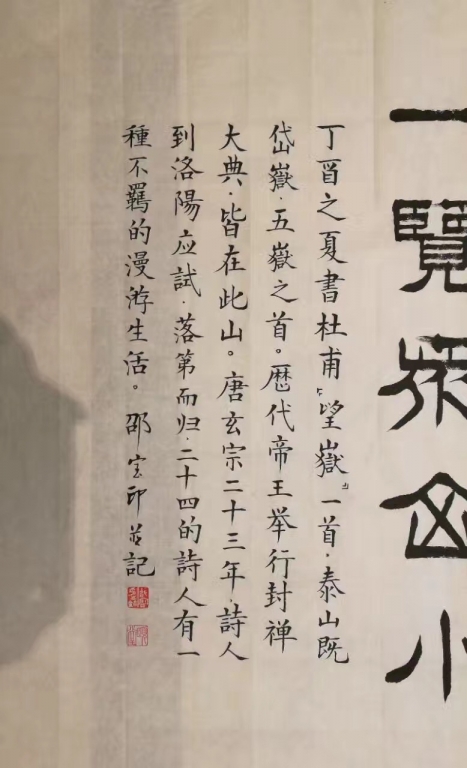 一覽衆山小
丁酉之夏書杜甫“望嶽”一首．泰山既
岱嶽．五嶽之首。歷代帝王举行封禅
大典．皆在此山。唐玄宗二十三年．詩人
到洛陽应試．落第而归．二十四的詩人有一
種不羈的漫游生活。邵宝印並記